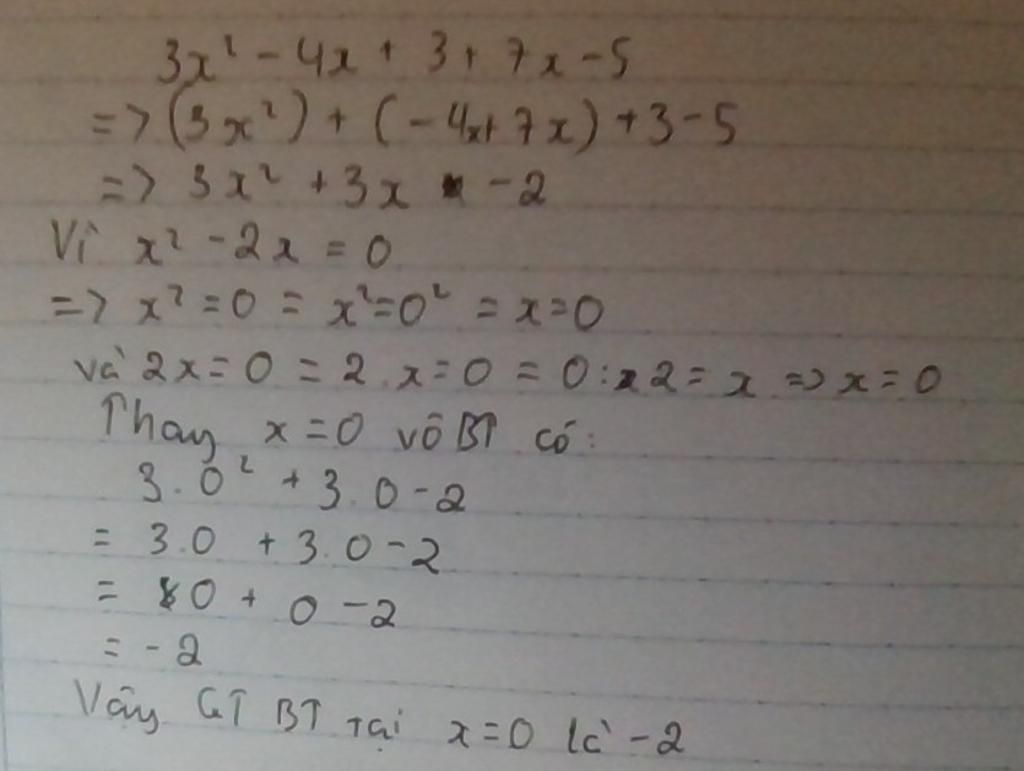 3x² - 4x + 3 + 7x - 5
=> (3x²) + (-4x + 7x) + 3 - 5
=> 3x² + 3x - 2
Vì x² - 2x = 0
=> x² = 0 = x² = 0² = x = 0
và 2x = 0 = 2 . x = 0 = 0 : 2 = x => x = 0
Thay x = 0 vô BT có:
3 . 0² + 3 . 0 - 2
= 3 . 0 + 3 . 0 - 2
= 0 + 0 - 2
= - 2
Vậy GT BT tại x = 0 là - 2